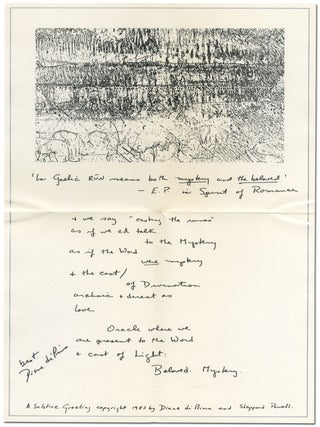 'In Gaelic RŪN means both mystery and the beloved'
— E.P. in Spirit of Romance
& we say "casting the runes"
as if we cd talk
to the Mystery
as if the Word
were mystery
& the cast/
of Divination
archaic & direct as
love
Oracle where we
are present to the Word
& cast of Light:
Beloved. Mystery.
best
Diane di Prima
A Solstice Greeting copyright 1983 by Diane di Prima and Sheppard Powell.